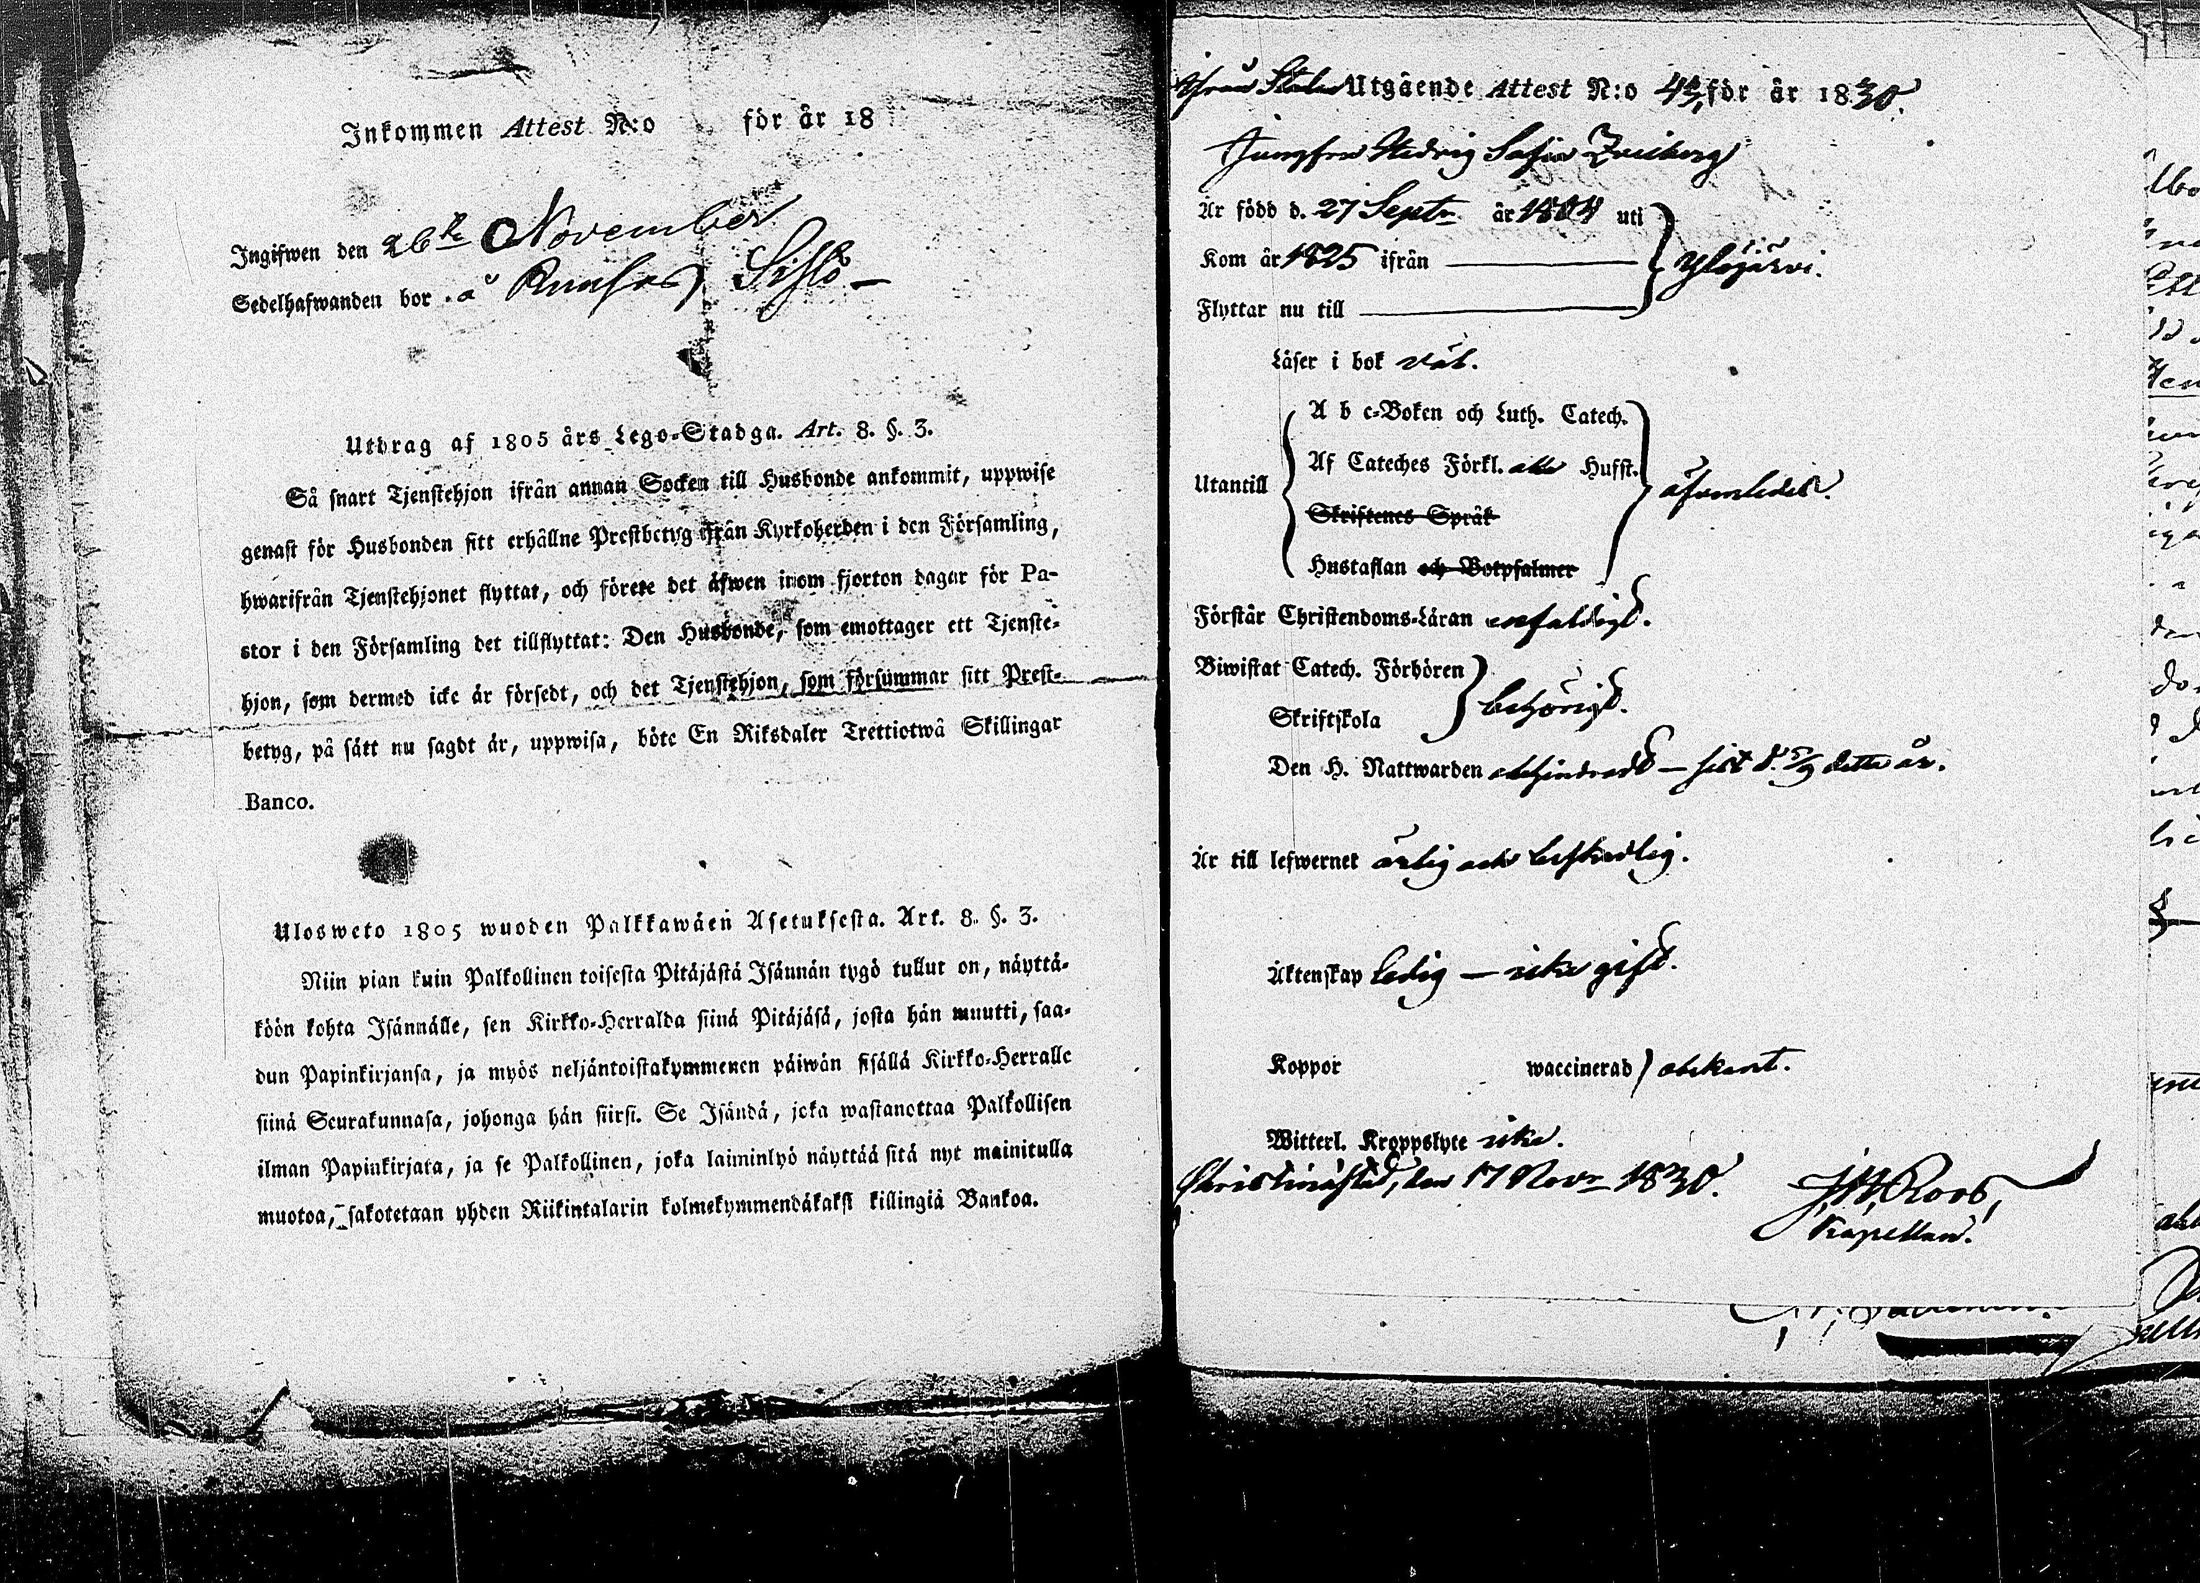 Inkommen Attest N:o för år 18
Ingifwen den 26te November
Sedelhafwanden bor å
Utdrag af 1805 års Lego-Stadga. Art. 8. §. 3.
Så snart Tjenstehjon ifrån annan Socken till Husbonde ankommit, uppwise
genast för Husbonden sitt erhållne Prestbetyg ifrån Kyrkoherden i den Församling,
hwarifrån Tjenstehjonet flyttat, och förete det äfwen inom fjorton dagar för Pa-
stor i den Församling det tillflyttat: Den Husbonde, som emottager ett Tjenste-
hjon, som dermed icke är försedt, och det Tjenstehjon, som försummar sitt Prest-
betyg, på sätt nu sagdt är, uppwisa, böte En Riksdaler Trettiotwå Skillingar
Banco.
Ulosweto 1805 wuoden Palkkawäen Asetuksesta. Art. 8. §. 3.
Niin pian kuin Palkollinen toisesta Pitäjästä Isännän tygö tullut on, näyttä-
köön kohta Isännälle, sen Kirkko-Herralda siinä Pitäjäsä, josta hän muutti, saa-
dun Papinkirjansa, ja myös neljäntoistakymmenen päiwän sisällä Kirkko-Herralle
siinä Seurakunnasa, johonga hän siirsi. Se Isändä, joka wastanottaa Palkollisen
ilman Papinkirjata, ja se Palkollinen, joka laiminlyö näyttää sitä nyt mainitulla
muotoa, sakotetaan yhden Riikintalarin kolmekymmendäkaksi killingiä Bankoa.
Utgående Attest N:o för år 1830.
Jungfru Hedvig Sofia
Är född d. 27 Septr. år 1804 uti
Kom år 1825 ifrån
Ylöjärvi.
Flyttar nu till
Läser i bok väl.
Utantill
A b c-Boken och Luth. Catech.
Af Cateches Förkl. alla Husst.
åfvanledes.
Skriftenes Språk
Hustaflan och Botpsalmer
Förstår Christendoms-Läran enfaldigt.
Biwistat Catech. Förhören
behörigt.
Skriftskola
Den H. Nattwarden obehindradt – sist d. 5/9 detta år.
Är till lefwernet ärlig och beskedlig.
Äktenskap ledig – icke gift.
Koppor waccinerad) obekant.
Witterl. Kroppslyte icke.
Christinæstad, den 17 Novr 1830.
Roos,
Kapellan.